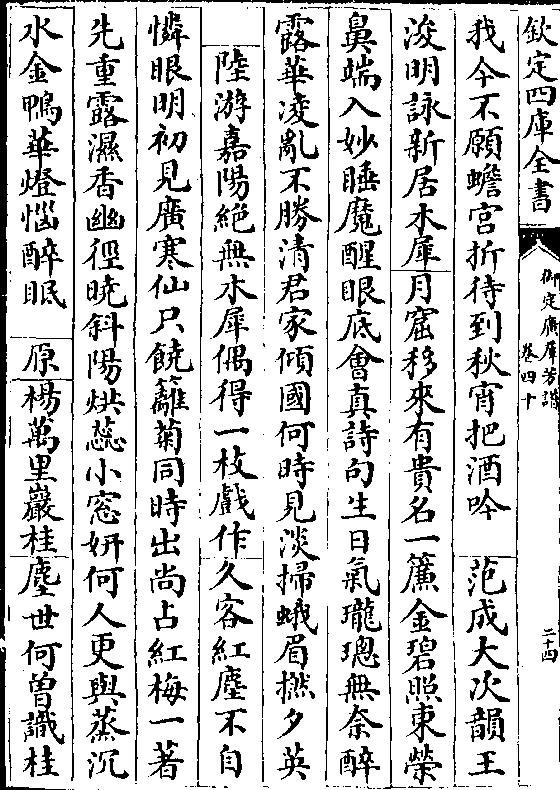 欽定四庫全書
御定廣羣芳譜
卷四十
二十四
我今不願蟾宮折待到秋宵把酒吟　范成大次韻王
浚明詠新居木犀月窟移來有貴名一簾金碧照東榮
鼻端入妙睡魔醒眼底會真詩句生日氣瓏璁無奈醉
露華凌亂不勝清君家傾國何時見淡掃蛾眉撚夕英
陸游嘉陽絕無木犀偶得一枝戲作久客紅塵不自
憐眼明初見廣寒仙只饒籬菊同時出尚占紅梅一著
先重露濕香幽徑曉斜陽烘蕊小窓妍何人更與蒸沉
水金鴨華燈惱醉眠　原楊萬里巖桂塵世何曾識桂